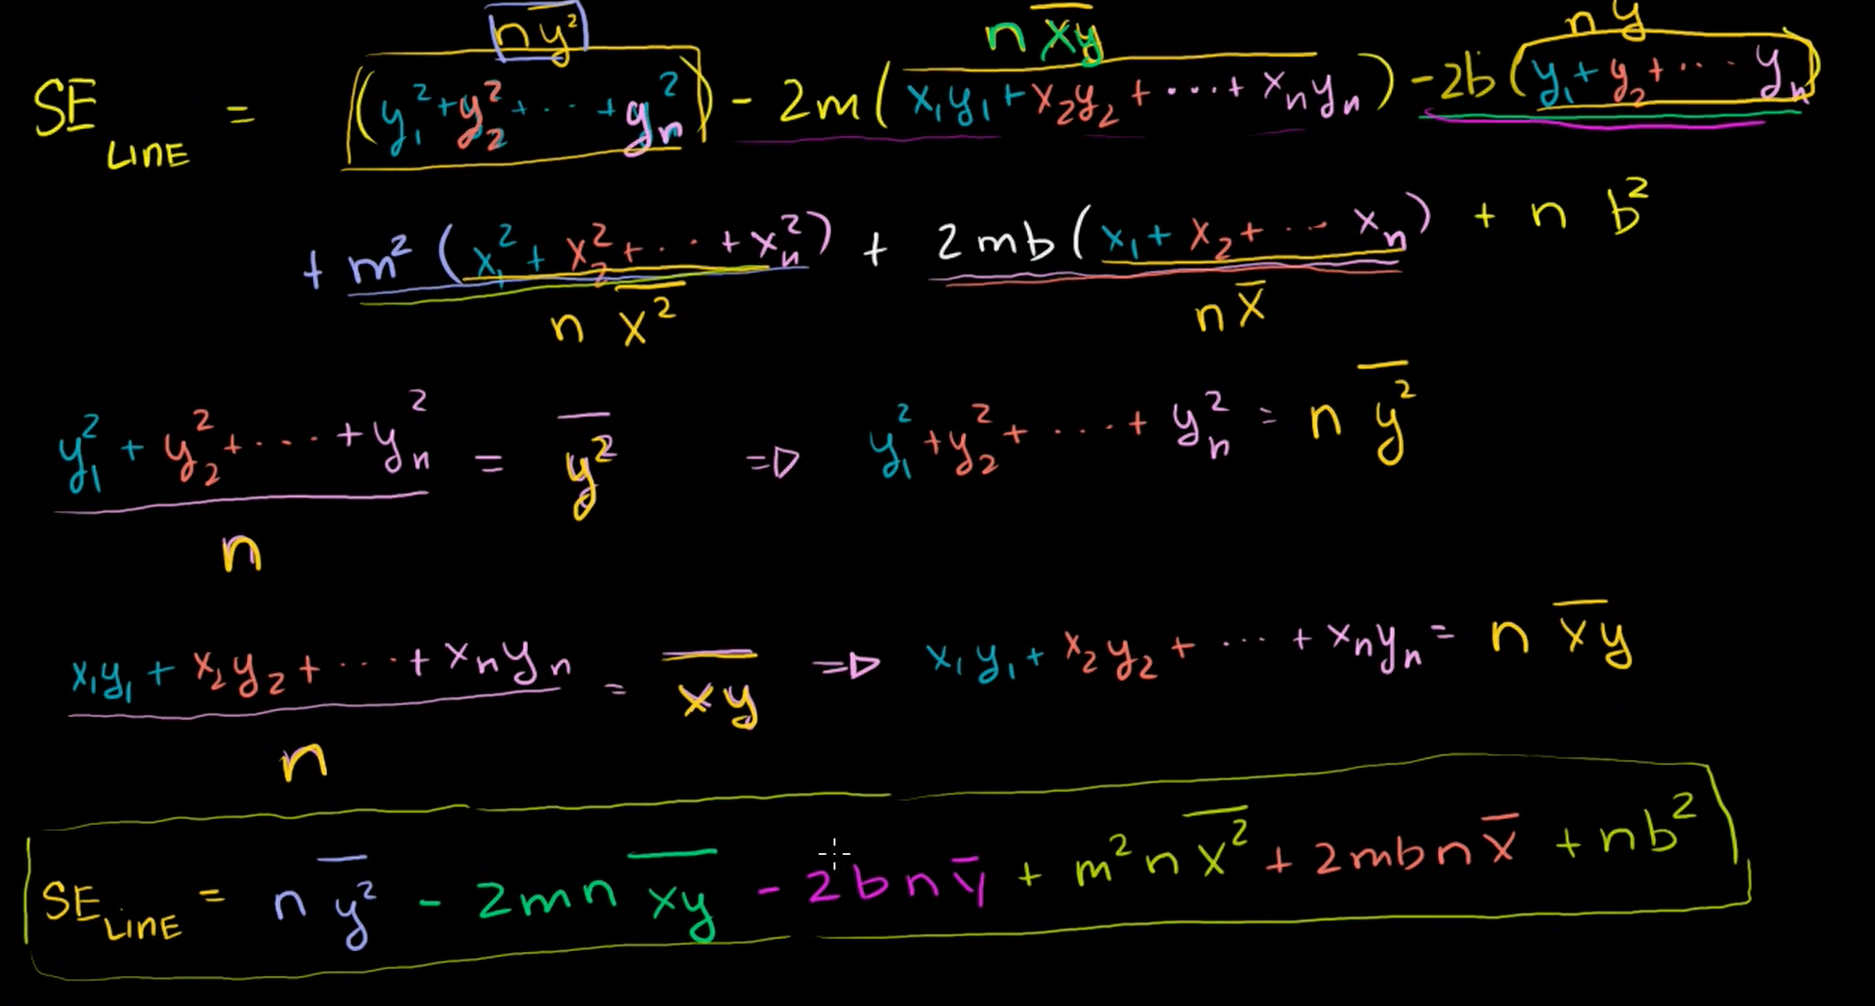 n y̅²̅ n x̅y̅ n y
SE LINE = (y₁² + y₂² + ··· + yₙ²) - 2m(x₁y₁ + x₂y₂ + ··· + xₙyₙ) - 2b(y₁ + y₂ + ··· yₙ)
+ m²(x₁² + x₂² + ··· + xₙ²) + 2mb(x₁ + x₂ + ··· xₙ) + n b²
n x̅²̅ n x̅
y₁² + y₂² + ··· + yₙ² / n = y̅²̅ ⇒ y₁² + y₂² + ··· + yₙ² = n y̅²̅
x₁y₁ + x₂y₂ + ··· + xₙyₙ / n = x̅y̅ ⇒ x₁y₁ + x₂y₂ + ··· + xₙyₙ = n x̅y̅
SE LINE = n y̅²̅ - 2mn x̅y̅ - 2bn y̅ + m²n x̅²̅ + 2mbn x̅ + nb²